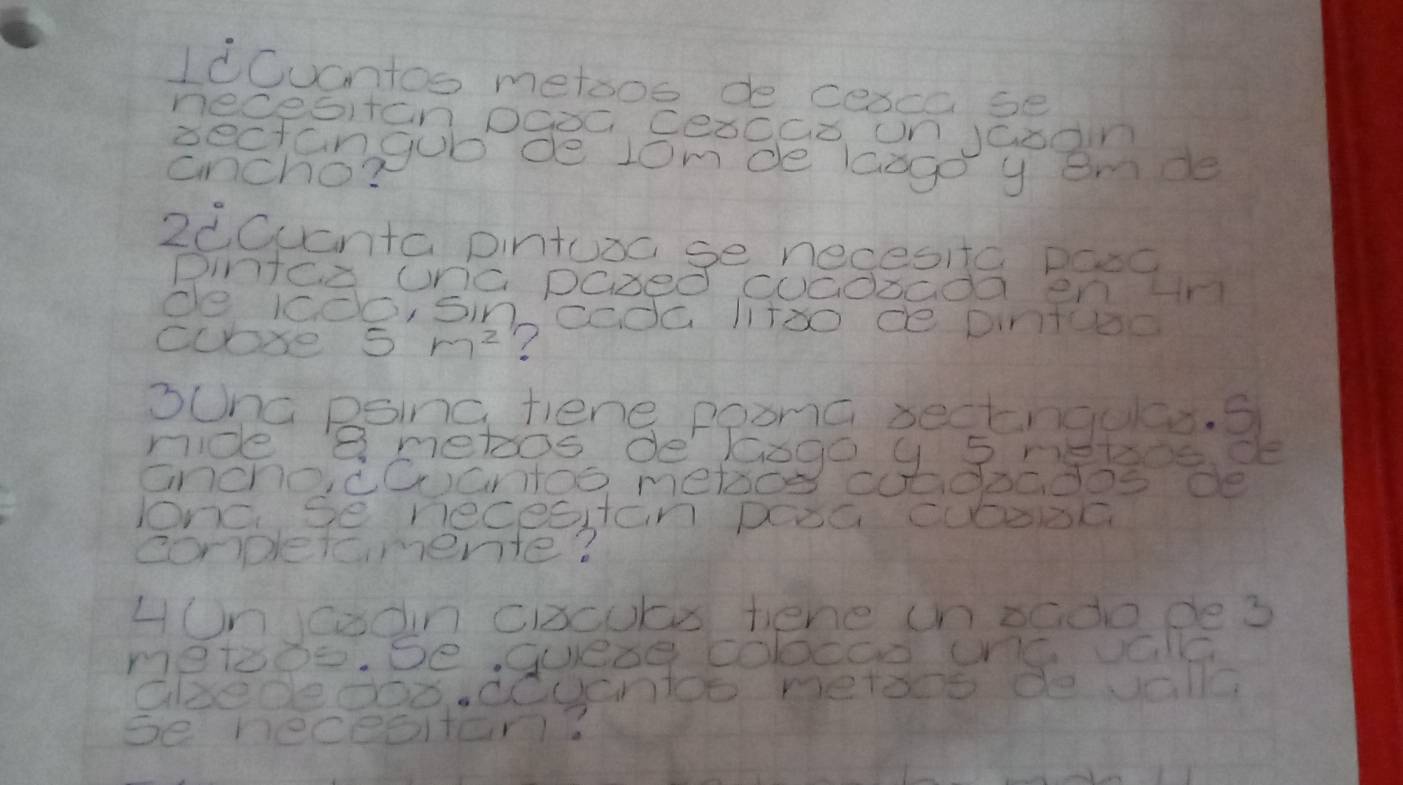 1¿Cuantos metros de cerca se
necesitan para cercar un jardin
rectangulo de 10m de largo y 8m de
ancho?
2¿Cuanta pintura se necesita para
pintar una pared cuadrada en 4m
de lado, sin cada litro de pintura
cubre 5 m²?
3Una psina tiene forma rectangular. Si
mide 8 metros de largo y 5 metros de
ancho, ¿Cuantos metros cuadrados de
lona se necesitan para cubrirla
completamente?
4Un jardin circular tiene un radio de 3
metros. Se .quiere colocar una valla
alrededor. ¿Cuantos metros de valla
se necesitan?